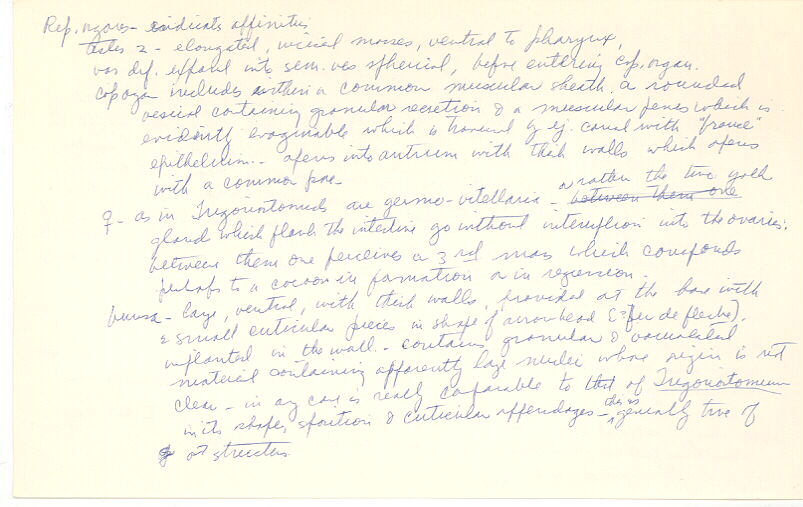 Rep. organs - indicate affinities
testes 2 - elongated, visical masses, ventral to pharynx,
vas def. expand into sem. ves spherical, before entering cop. organ.
cop organ includes within a common muscular sheath, a rounded
vesical containing granular secretion & a muscular penis which is
evidently evaginable which is traversed by ej. canal with "fraué"
epithelium. - opens into antrum with thick walls which opens
with a common pore
♀ - as in Trigonostomids are germo-vitellaria - or rather the two yolk
gland which flank the intestine go without interruption into the ovaries;
between them one perceives a 3rd mass which corresponds
perhaps to a cocoon in formation or in regression.
bursa - large, ventral, with thick walls, provided at the base with
2 small cuticular pieces in shape of arrowhead (? fer de fleche).
implanted in the wall. - contains granular & vacuolated
material containing apparently large nuclei whose origin is not
clear - in any case is really comparable to that of Trigonostomum
in its shape, position & cuticular appendages - this is generally true of
st structures.